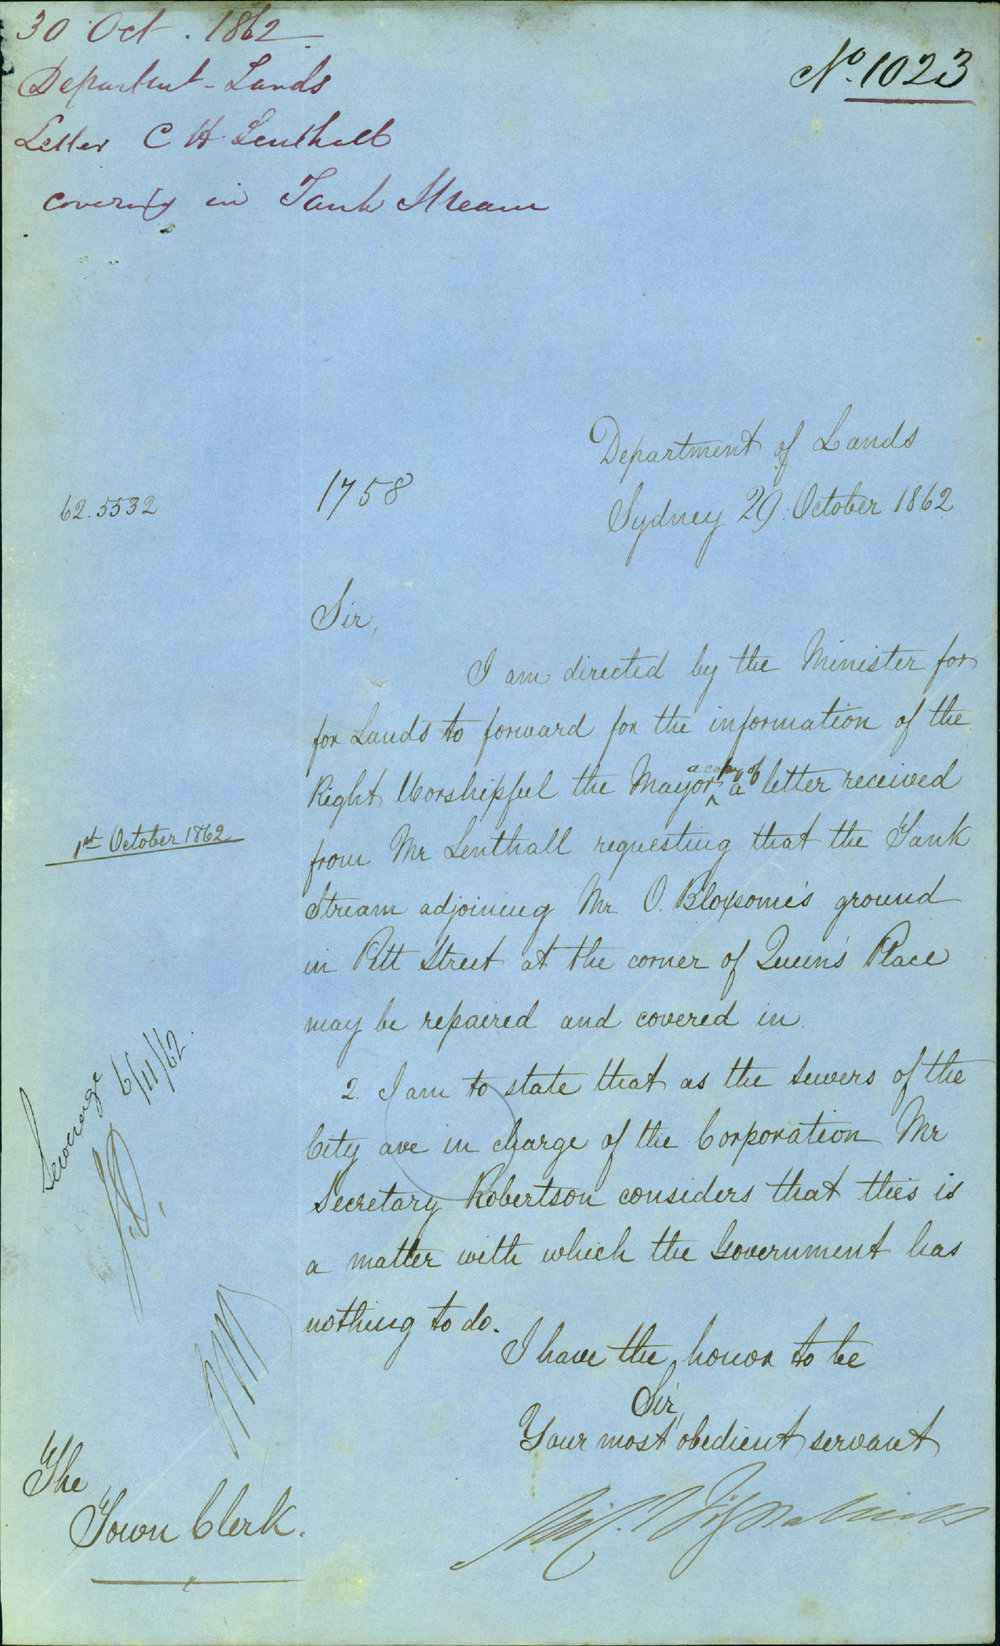 30 Oct. 1862
Department - Lands
Letter C H Lenthall
covering in Tank Stream
No. 1023
Department of Lands
62.5532
1758
Sydney 29. October 1862
Sir,
I am directed by the Minister for
for Lands to forward for the information of the
Right Worshipful the Mayor, a copy of a letter received
1st October 1862
from Mr Lenthall requesting that the Tank
Stream adjoining Mr O. Bloxsome's ground
in Pitt Street at the corner of Queen's Place
may be repaired and covered in.
2. I am to state that as the sewers of the
City are in charge of the Corporation Mr
Secretary Robertson considers that this is
a matter with which the Government has
nothing to do.
Sewerage 6/11/62.
I have the honor to be
Sir,
Your most obedient servant
The
Town Clerk.